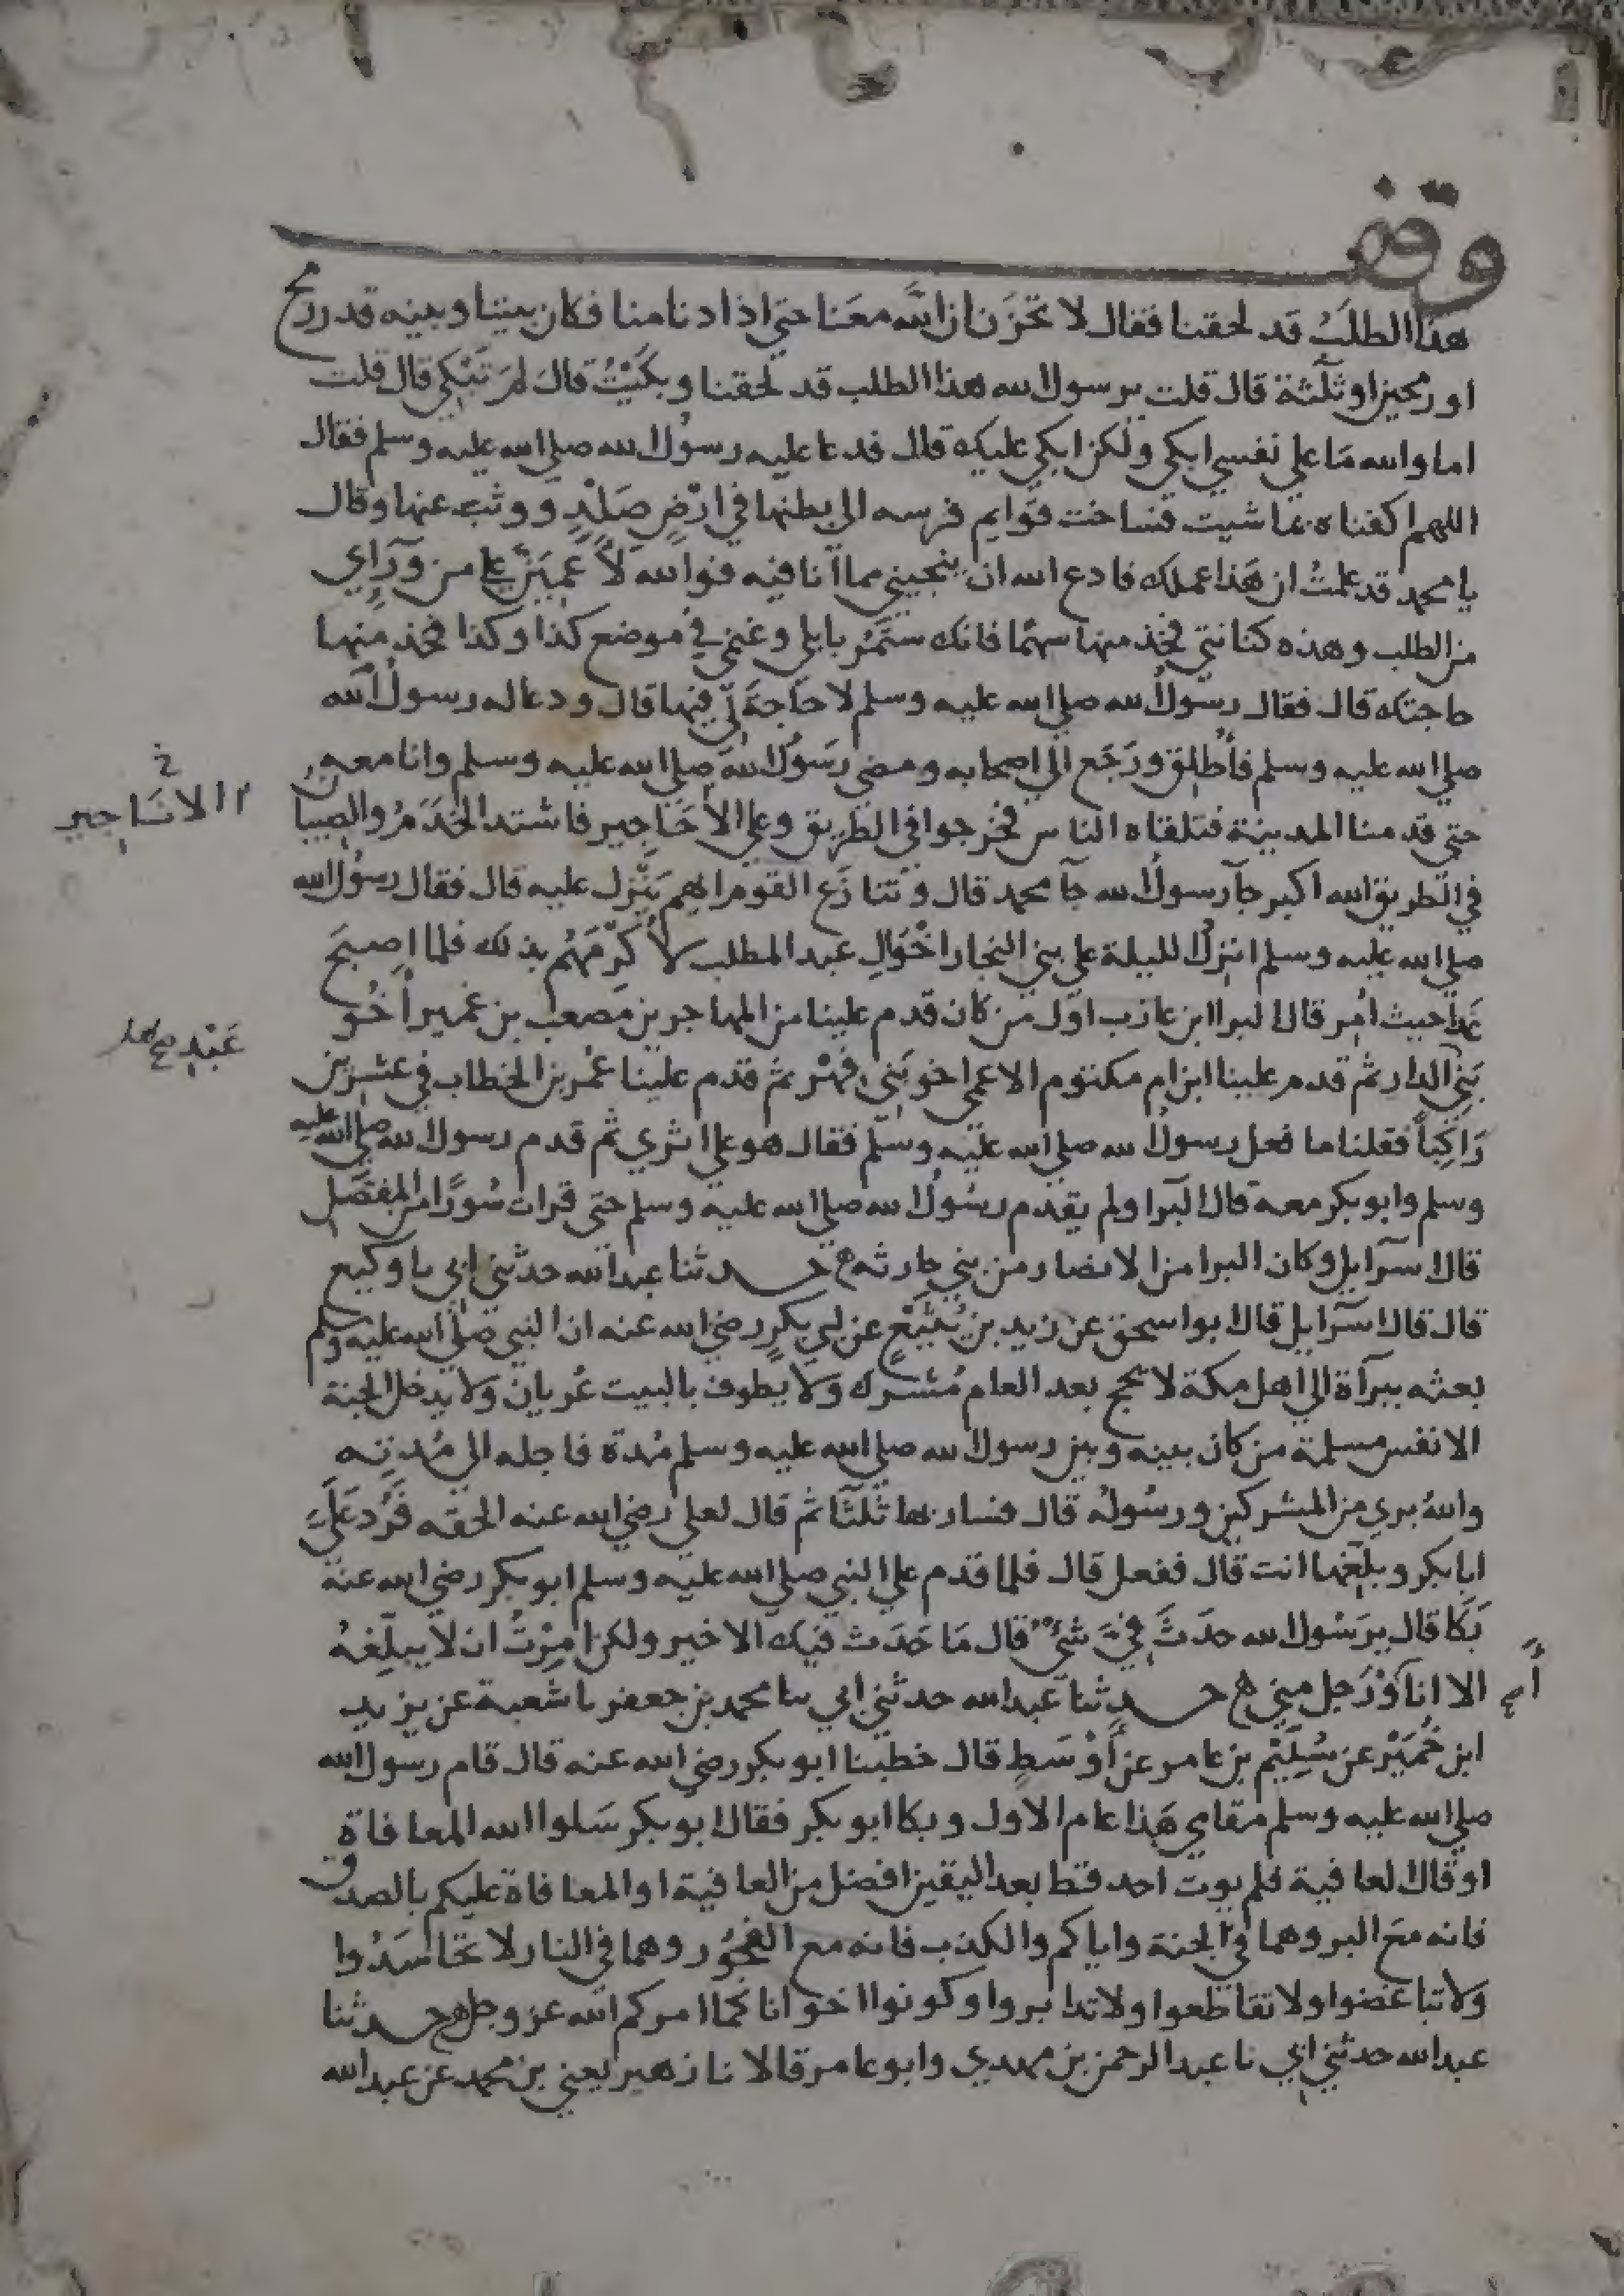 وقف
هذا الطلَبُ قد لحقنا فقال لا تحزَن ان الله معَنا حتى اذا دنا منا فكان بيننا وبينه قدر رمح
او رمحين او ثلثة قال قلت يرسول الله هذا الطلب قد لحقنا وبكَيْتُ قال لمَ تَبْكي قال قلت
اما والله مَا على نفسي ابكي ولكن ابكي عليك قال فدعا عليه رسوُل الله صلى الله عليه وسلم فقال
اللهم اكفناه بما شيت فساخت قوَايم فرسه الى بطنها في ارْضٍ صَلْدٍ ووثب عنها وقال
يا محمد قد علمتُ ان هَذا عملك فادع الله ان ينجيني مما اَنا فيه فوالله لاُعَمِيَنَّ على من وَرَآي
من الطلب وهذه كنانتي فخذ منها سهمًا فانك ستَمُر بابلي وغنمي في مُوضع كذا وكذا فخذ منها
حاجتك قال فقال رسُول الله صلى الله عليه وسلم لا حَاجةَ لي فيها قال ودعا له رسول الله
صلى الله عليه وسلم فأُطلِق ورَجَع الى اصحابه ومضى رسَوُل الله صلى الله عليه وسلم وانا معه
حتى قدمنا المدينة فتلقاه الناس فخرجوا في الطريق وعلى الأحَاجِير فاشتد الخدَمُ والصبيا ن
الانَاجير خ
في الطريق الله اكبر جآ رسولُ الله جآ محمد قال وَتنازَع القوم ايهم يَنْزِل عليه قال فقال رسوُل الله
صلى الله عليه وسلم انزلُ الليلة على بني النجار اخْوَالِ عبد المطلب لاُكَرِّمَهُم بذلك فلما اصبَحَ
غدَا حيث اُمِر قال البرا ابن عازب اوّل من كان قدم علينا من المهاجرين مُصعَب بن عُمَير أخُو
عَبْدِ صح
بَني الدار ثم قدم علينا ابن ام مكتوم الاعمى اخو بَني فِهْر ثم قدم علينا عمُر بن الخطاب في عشرين
رَاكِبًا فقلنا ما فعل رسولُ الله صلى الله عليه وسلّم فقال هو على اثري ثم قدم رسول الله صلى الله عليه
وسلم وابو بكر معه قال البرا ولم يقدم رسُولُ الله صلى الله عليه وسلم حتى قرات سُورًا من المفصَّل
قال اسرآيل وكان البرا من الانصار من بني حارثه ه حدثنا عبد الله حدثني ابي نا وكيع
قال قال اسرآيل قال ابو اسحق عن زيد بن يُثَيْعٍ عن ابي بكرٍ رضي الله عنه ان النبي صلى الله عليه وسلم
بعثه ببرآة الى اهل مكة لا يحج بعد العام مُشرك وَلا يطوف بالبيت عُريان وَلا يدخل الجنة
الا نفس مسلمة من كان بينه وبين رسول الله صلى الله عليه وسلم مُدة فاجله الى مُدتِه
واللهُ بري من المشركين ورسُولُه قال فسار بها ثَلثًا ثم قال لعلى رضي الله عنه الحقه فَرُدَّ عَلَيَّ
ابا بكر وبلِّغها انت قال ففعل قال فلما قدم على النبي صلى الله عليه وسلم ابو بكر رضي الله عنه
بَكَا قال يرسُول الله حدَثَ فِيَّ شَيْءٌ قال مَا حَدَث فيك الا خير ولكن اُمِرْتُ ان لا يبلِّغهُ
الا انا أوْ رَجل مني ه حدثنا عبد الله حدثني ابي نا محمد بن جعفر نا شعبة عن يزيد
ابن خُمَيْر عن سُلَيْم بن عامر عن أوْسَطٍ قال خطبنا ابو بكر رضي الله عنه قال قام رسول الله
صلى الله عليه وسلم مقامي هَذا عام الاول وبكا ابو بكر فقال ابو بكر سَلوا الله المعافاة
او قال العافية فلم يوت احد قط بعد اليقين افضل من العافية او المعافاة عليكم بالصدق
فانه مَع البر وهما في الجنة واياكم والكذب فانه مع الفجُور وهما في النار لا تحَاسَدُوا
ولا تباغضوا ولا تقاطعوا ولا تدابروا وكونوا اخوانا كما امركم الله عز وجل ه حدثنا
عبد الله حدثني ابي نا عبد الرحمن بن مهدي وابو عامر قالا نا زهير يعني بن محمد عن عبد الله